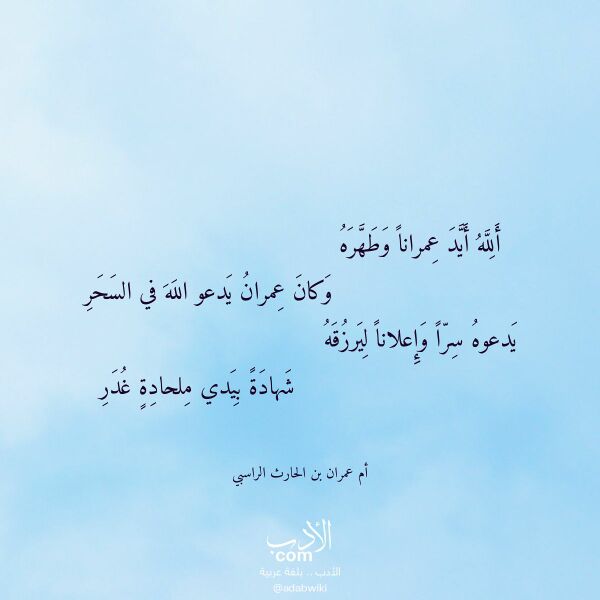 أَللَّهُ أَيَّدَ عِمراناً وَطَهَّرَهُ
وَكانَ عِمرانُ يَدعو اللَهَ في السَحَرِ
يَدعوهُ سِرّاً وَإِعلاناً لِيَرزُقَهُ
شَهادَةً بِيَدي مِلحادِةٍ غُدَرِ
أم عمران بن الحارث الراسبي
الأدب
com
الأدب .. بلغة عربية
@adabwiki